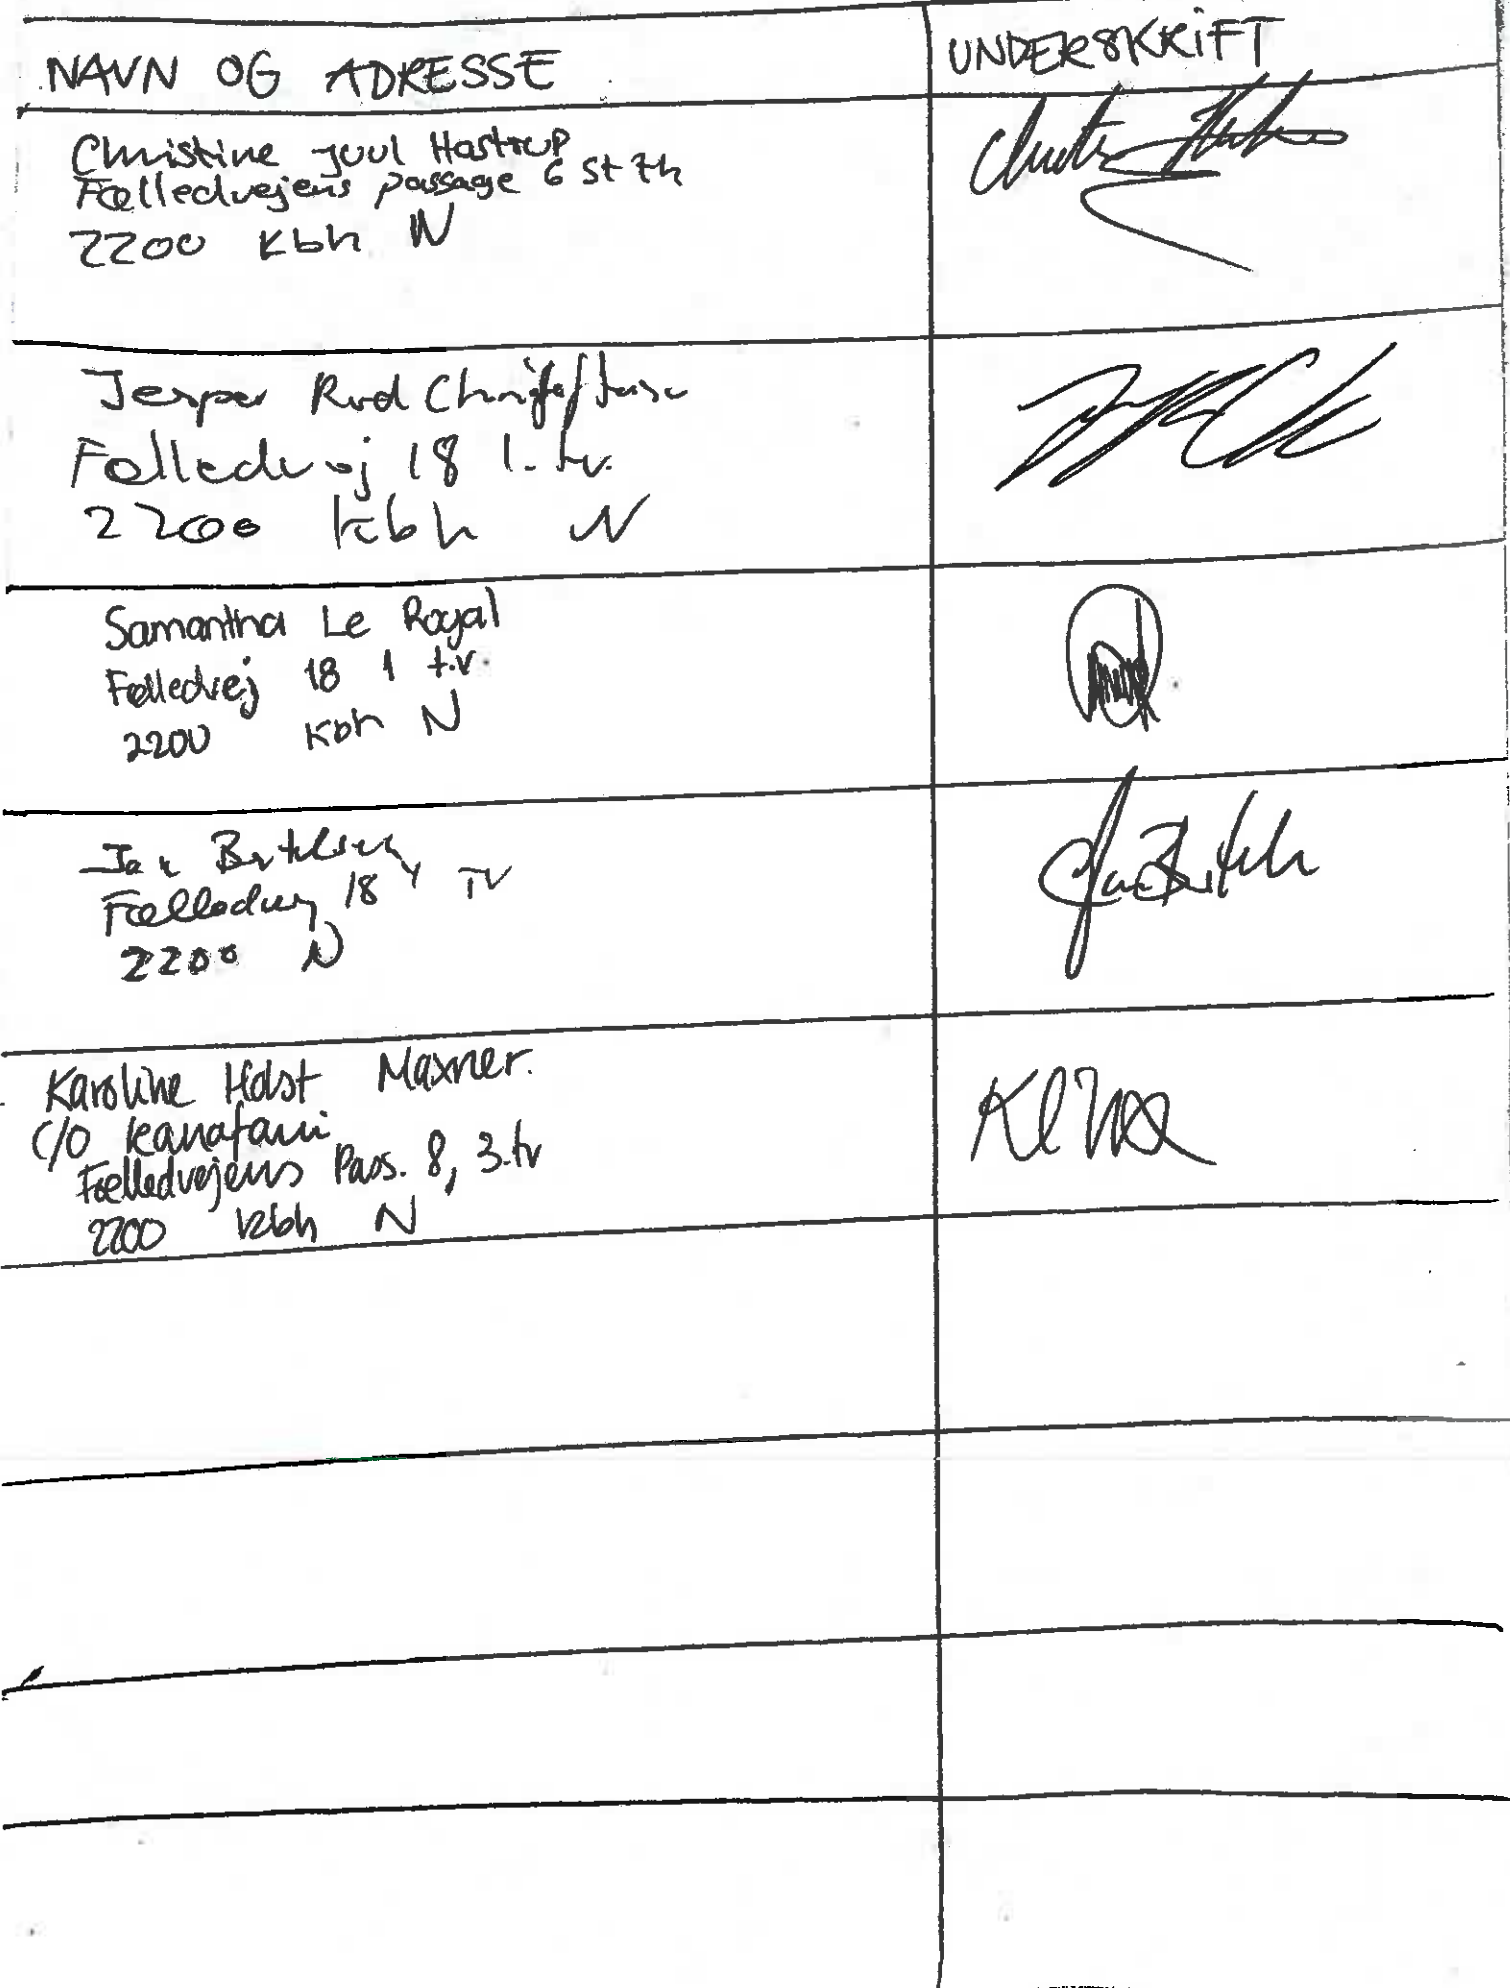 NAVN OG ADRESSE
UNDERSKRIFT
Christine Juul Hastrup
Fælledvejens passage 6 st th
2200 Kbh N
Jesper Rud
Fælledvej 18 1. tv.
2200 Kbh N
Samantha Le Royal
Fælledvej 18 1 t.v.
2200 Kbh N
Fælledvej 18 TV
2200 N
Karoline Holst Maxner.
C/O Kanafani
Fælledvejens Pass. 8, 3. tv
2200 Kbh N